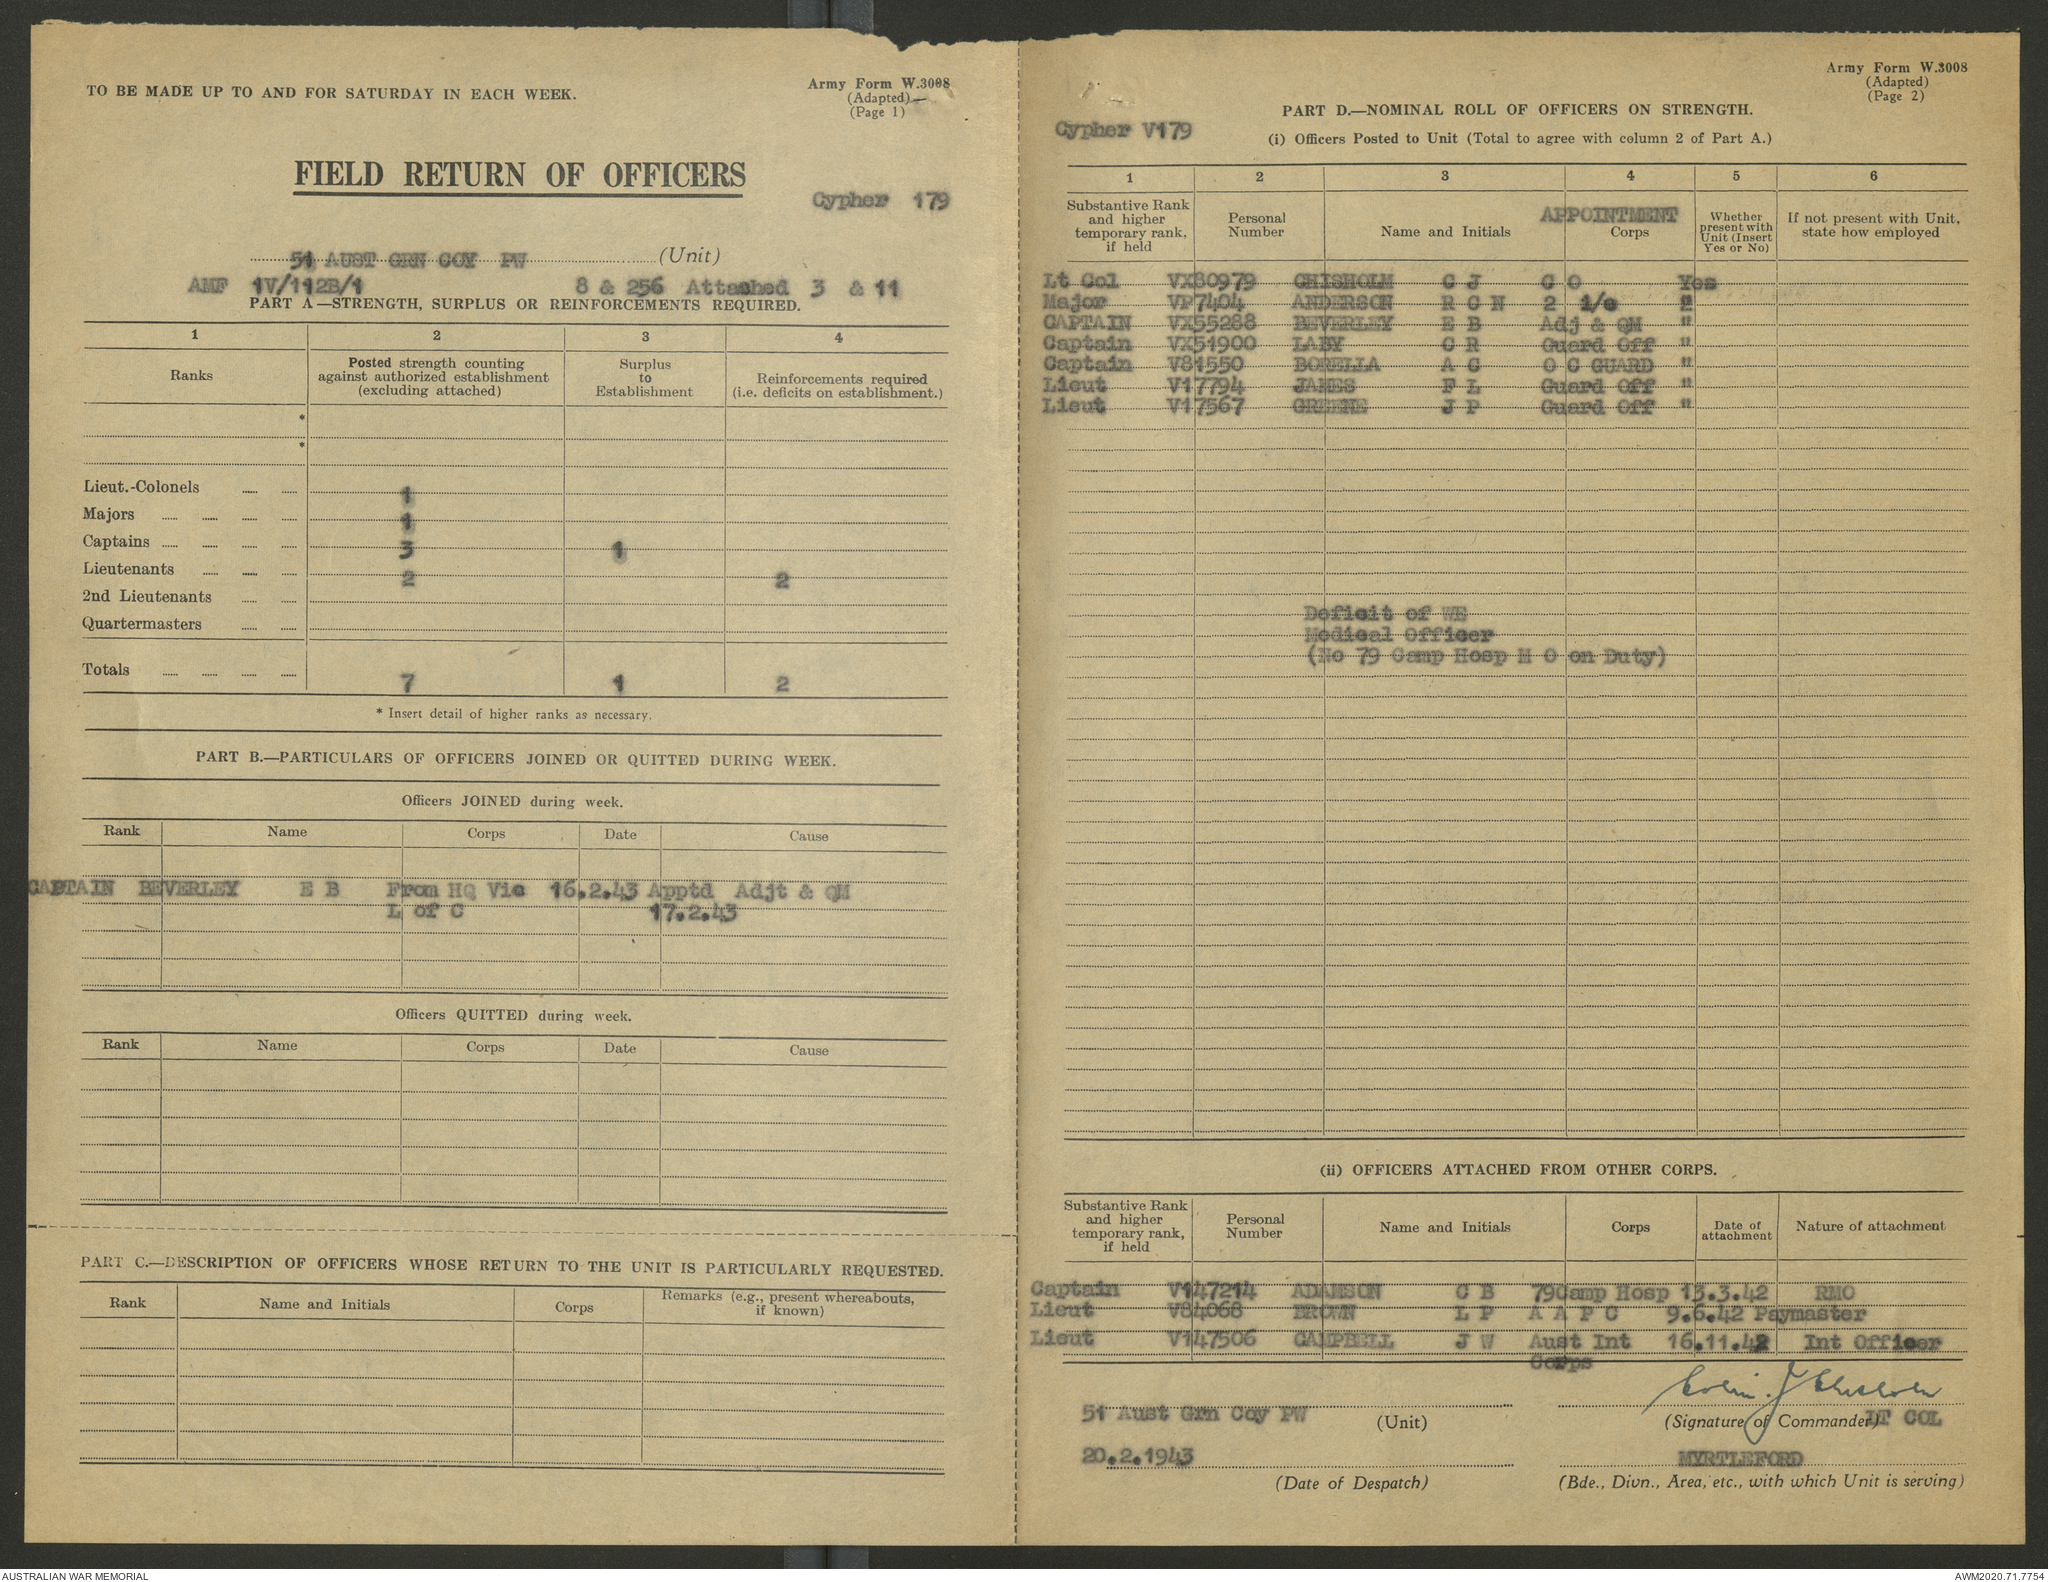 TO BE MADE UP TO AND FOR SATURDAY IN EACH WEEK.
Army Form W.3008
(Adapted)
(Page 1)
FIELD RETURN OF OFFICERS
Cypher 179
51 AUST GRN COY PW (Unit)
AMF 1V/112B/1 8 & 256 Attached 3 & 11
PART A—STRENGTH, SURPLUS OR REINFORCEMENTS REQUIRED.
1 2 3 4
Ranks
Posted strength counting
against authorized establishment
(excluding attached)
Surplus
to
Establishment
Reinforcements required
(i.e. deficits on establishment.)
*
*
Lieut.-Colonels 1
Majors 1
Captains 3 1
Lieutenants 2 2
2nd Lieutenants
Quartermasters
Totals 7 1 2
* Insert detail of higher ranks as necessary.
PART B.—PARTICULARS OF OFFICERS JOINED OR QUITTED DURING WEEK.
Officers JOINED during week.
Rank Name Corps Date Cause
CAPTAIN BEVERLEY E B From HQ Vic 16.2.43 Apptd Adjt & QM
L of C 17.2.43
Officers QUITTED during week.
Rank Name Corps Date Cause
PART C.—DESCRIPTION OF OFFICERS WHOSE RETURN TO THE UNIT IS PARTICULARLY REQUESTED.
Rank Name and Initials Corps
Remarks (e.g., present whereabouts,
if known)
Army Form W.3008
(Adapted)
(Page 2)
PART D.—NOMINAL ROLL OF OFFICERS ON STRENGTH.
Cypher V179
(i) Officers Posted to Unit (Total to agree with column 2 of Part A.)
1 2 3 4 5 6
Substantive Rank
and higher
temporary rank,
if held
Personal
Number
Name and Initials
APPOINTMENT
Corps
Whether
present with
Unit (Insert
Yes or No)
If not present with Unit,
state how employed
Lt Col VX80979 CHISHOLM C J C O Yes
Major VP7404 ANDERSON R C N 2 i/c "
CAPTAIN VX55288 BEVERLEY E B Adj & QM "
Captain VX51900 LABY C R Guard Off "
Captain V81550 BORELLA A C O C GUARD "
Lieut V17794 JAMES F L Guard Off "
Lieut V17567 GREENE J P Guard Off "
Deficit of WE
Medical Officer
(No 79 Camp Hosp M O on Duty)
(ii) OFFICERS ATTACHED FROM OTHER CORPS.
Substantive Rank
and higher
temporary rank,
if held
Personal
Number
Name and Initials
Corps
Date of
attachment
Nature of attachment
Captain V147214 ADAMSON C B 79Camp Hosp 13.3.42 RMO
Lieut V84068 BROWN L P A A P C 9.6.42 Paymaster
Lieut V147506 CAMPBELL J W Aust Int 16.11.42 Int Officer
Corps
Colin J Chisholm
51 Aust Grn Coy PW (Unit)
(Signature of Commander) LT COL
20.2.1943
(Date of Despatch)
MYRTLEFORD
(Bde., Divn., Area, etc., with which Unit is serving)
AUSTRALIAN WAR MEMORIAL
AWM2020.71.7754